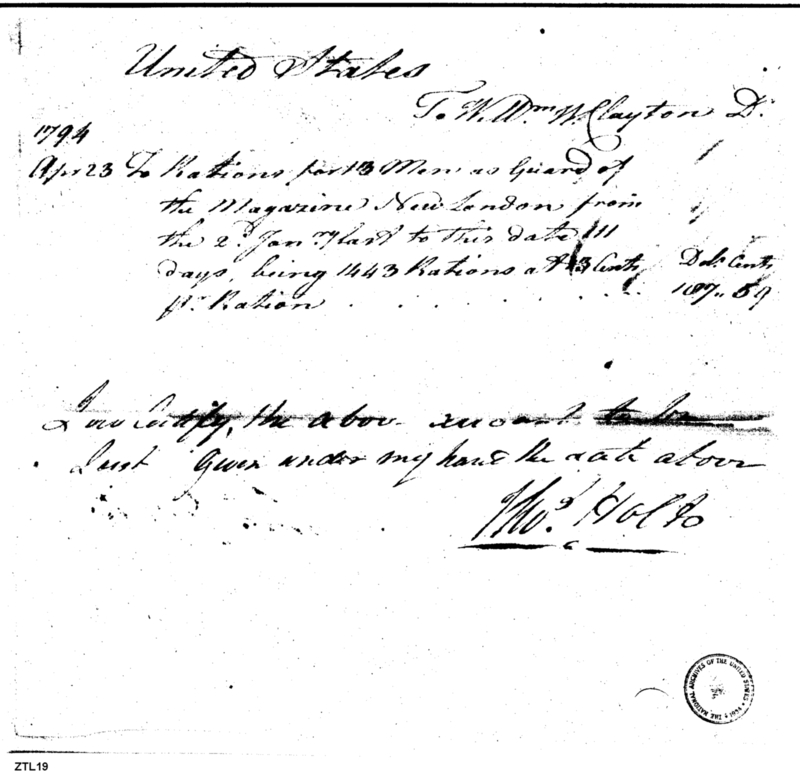 United States
To W. Wm. W. Clayton Dr.
1794
Apr 23 To Rations for 13 Men as Guard of
the Magazine New London from
the 2d. Janry last to this date 111
days, being 1443 Rations at 13 Cents
pr. Ration . . . . . . . . Dols Cents
187.. 59
I do Certify the above account to be
Just Given under my hand the date above
Thos. Holt
THE NATIONAL ARCHIVES OF THE UNITED STATES
ZTL19